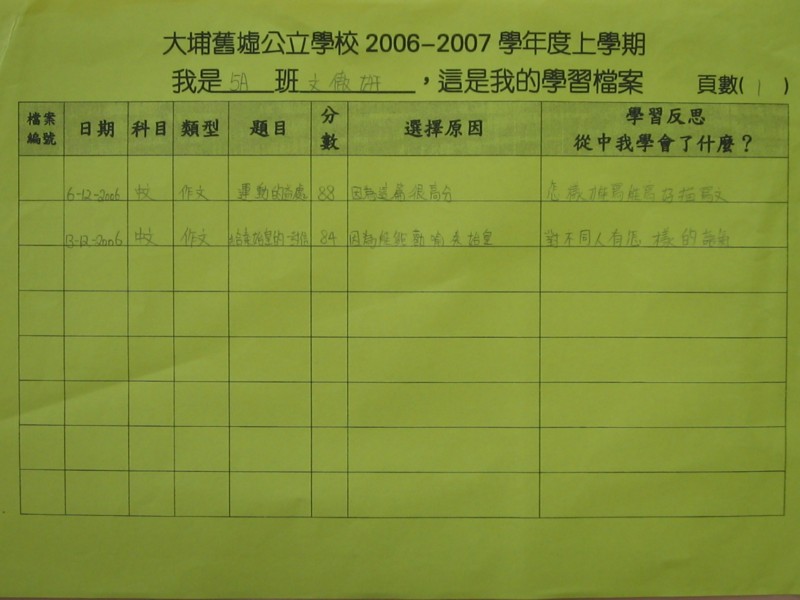 大埔舊墟公立學校 2006-2007 學年度上學期
我是 5A 班 文 妍 ，這是我的學習檔案 頁數( 1 )
檔案編號 日期 科目 類型 題目 分數 選擇原因 學習反思 從中我學會了什麼？
6-12-2006 中文 作文 運動的益處 88 因為這篇很高分 怎樣
13-12-2006 中文 作文 給秦始皇的一封信 84 因為能勸喻秦始皇 對不同人有怎樣的語氣